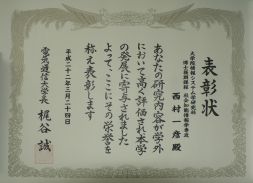 表彰状
大学院情報システム学研究科
博士後期課程 社会知能情報学専攻
西村一彦殿
あなたの研究内容が学外
において高く評価され本学
の発展に寄与されました
よってここにその栄誉を
称え表彰します
平成二十二年三月二十四日
電気通信大学長 梶谷 誠